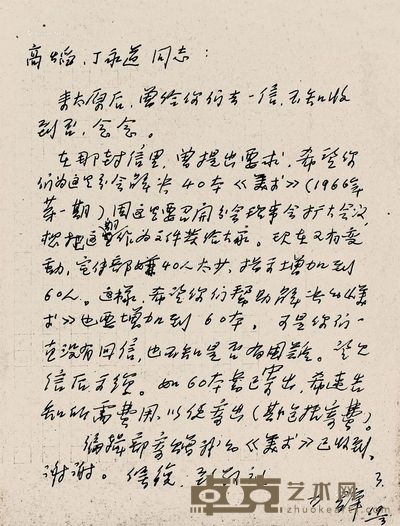 高焰、丁永道同志：
来太原后，曾给你们去一信，不知收
到否，念念。
在那封信里，曾提出要求，希望你
们为这里分会解决40本《美术》(1966年
第一期)因这里要召开分会理事会扩大会议
想把这期作为文件发给大家。现在又有变
动，宣传部嫌40人太少，指示增加到
60人。这样，希望你们帮助解决的《美
术》也要增加到60本。可是你们一
直没有回信，也不知是否有困难。望见
信后可复。如60本书已寄出，希速告
知所需费用，以便寄出(斯包括寄费)。
编辑部寄赠我的《美术》已收到，
谢谢。
卓克艺术网
www.zhuokearts.com